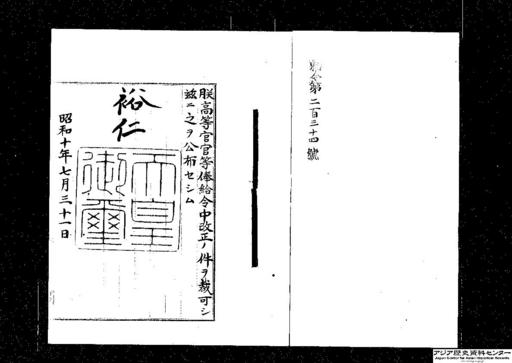 勅令第二百三十四號
朕高等官官等俸給令中改正ノ件ヲ裁可シ
玆ニ之ヲ公布セシム
裕仁
天皇御璽
昭和十年七月三十一日
アジア歴史資料センター
Japan Center for Asian Historical Records